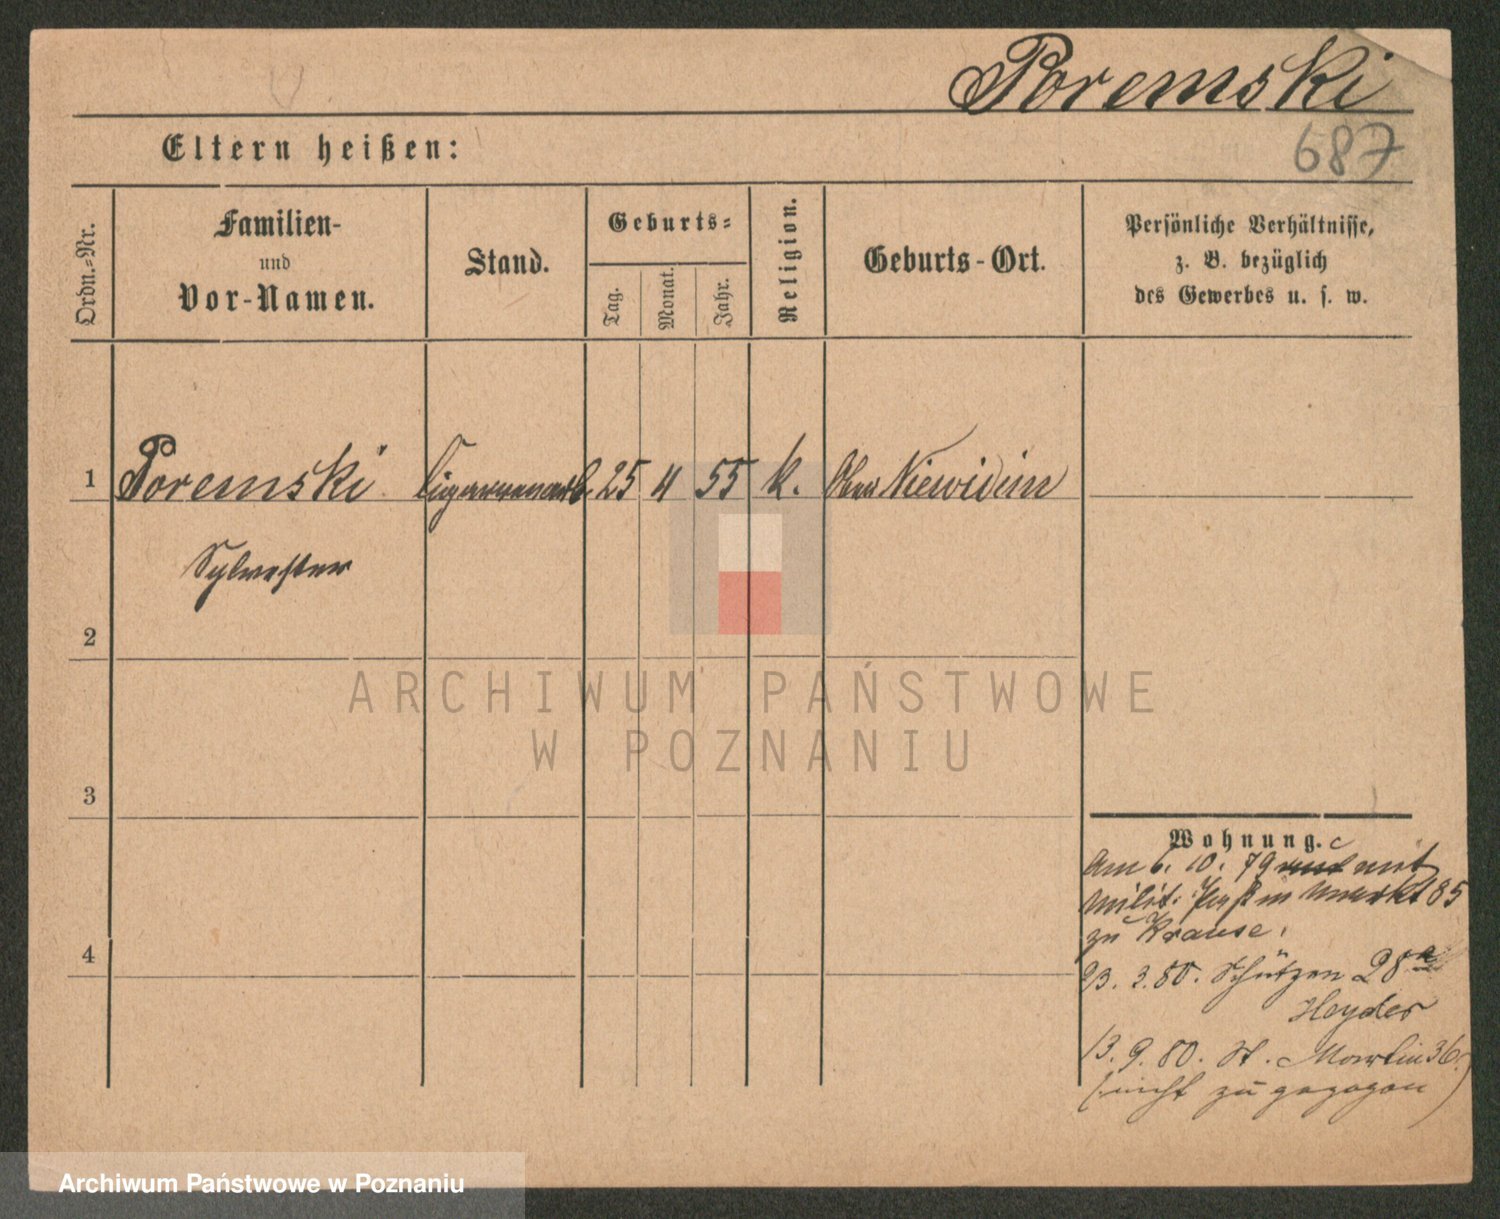 Poremski
687
Eltern heißen:
Ordn.-Nr.
Familien-
und
Vor-Namen.
Stand.
Geburts-
Tag.
Monat.
Jahr.
Religion.
Geburts-Ort.
Persönliche Verhältnisse,
z. B. bezüglich
des Gewerbes u. s. w.
1 Poremski Cigarrenarb. 25 11 55 k. Niewidim
Sylvester
2
ARCHIWUM PAŃSTWOWE
W POZNANIU
3
Wohnung.
Am 6. 10. 79 mit
Milit. Markt 85
zu Krause.
23. 2. 80. Schützen 28a
Heyder
13. 9. 80. St. Martin 36.
(nicht zugezogen)
4
Archiwum Państwowe w Poznaniu